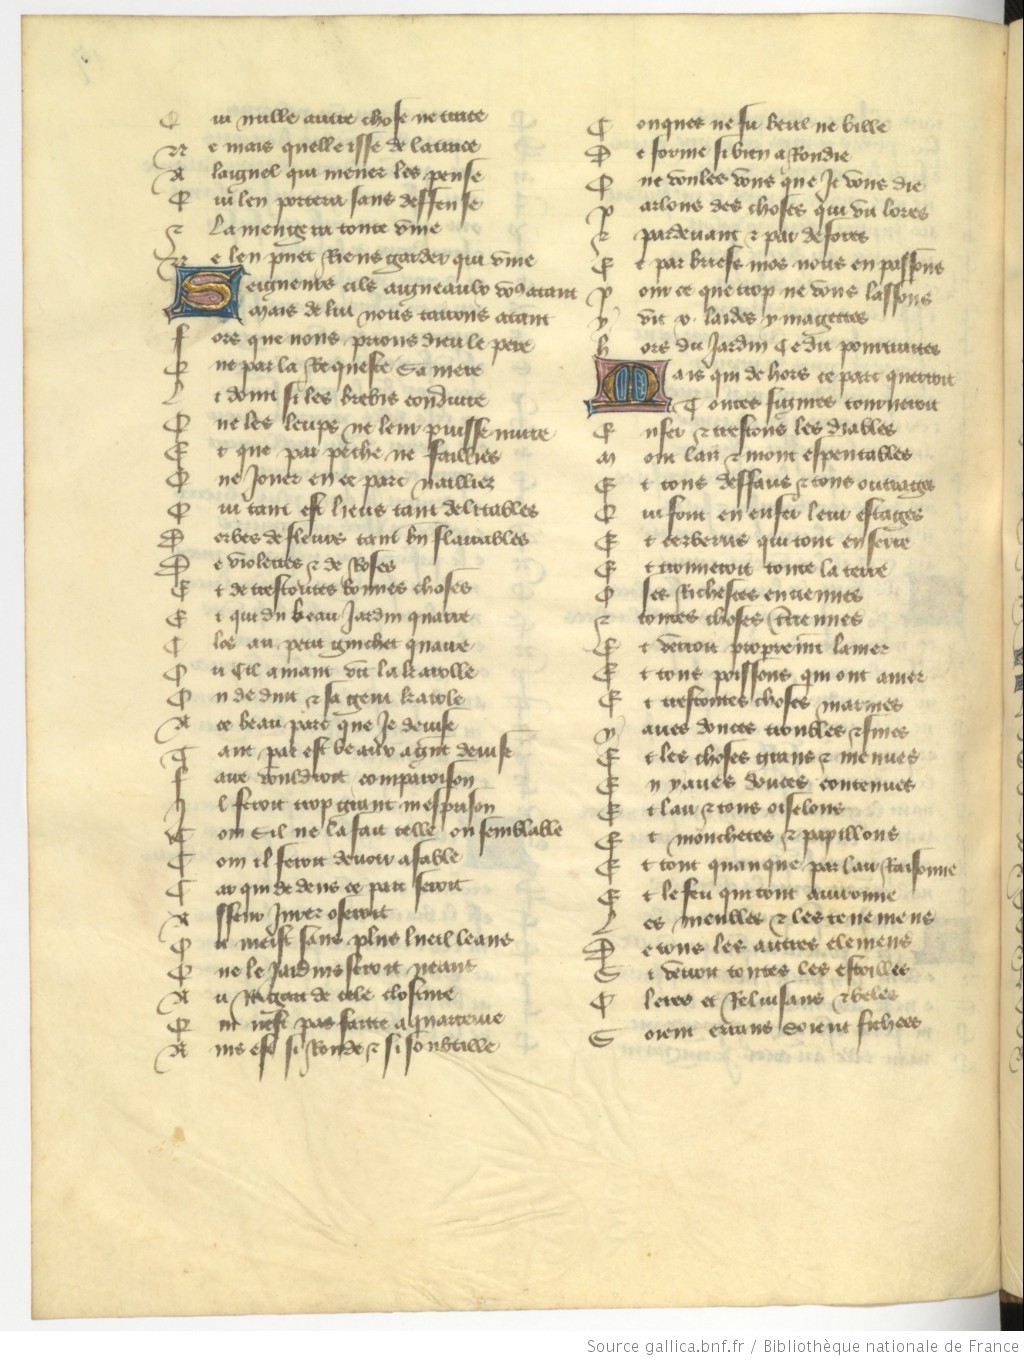 Qui nulle autre chose ne cuite
Ne mais quelle isse de la
A laignel qui mener les pense
Qui len portera sans deffense
Et la mengera toute vive
Ne len puet Riens garder qui vive
Seigneurs cils aigneaulx vous atant
Mais de lui nous tairons atant
Fors que nous prions dieu le pere
Que par la Requeste sa mere
Li doint si les brebis conduire
Que les leups ne leur puisse nuire
Et que par pechie ne failliez
Que Jouer en ce parc nailliez
Qui tant est lieus tant delitables
Derbes de fleurs tant bn flairables
De violetes et de Roses
Et de trestoutes bonnes choses
Et qui du beau Jardin quarre
Clos au petit guichet quarre
Ou Cil amant vit la karolle
Ou deduit et sa gent karole
A ce beau parc que Je devise
Tant par est beaux a grant devise
Faire vouldroit comparoison
Il feroit trop grant mesprison
Com Sil ne la fait telle ou semblable
Com il feroit de voir a fable
Car qui dedens ce parc seroit
Asseur Jurer oseroit
Ou meist sans plus lueil leans
Que le Jardins seroit neant
Au Regart de cele closture
Qui nest pas faitte a quarreure
Ains est si Ronde et si soubtille
Conques ne fu beril ne bille
De forme si bien aRondie
Que voules vous que Je vous die
Parlons des choses qui vit lores
Et par devant et par defores
Et par briefs mos nous en passons
Pour ce que trop ne vous lassons
Y vit .v. laides ymagettes
Hors du Jardin Ce dit pourtraites
Mais qui dehors ce parc querroit
Toutes figures trouveroit
Enfer et trestous les diables
Moult lais et moult espentables
Et tous deffaus et tous outrages
Qui font en enfer leur estages
Et cerberus qui tout enserre
Et trouveroit toute la terre
O ses Richesces enciennes
Et toutes choses terriennes
Et verroit proprement la mer
Et tous poissons qui ont amer
Et trestoutes choses marines
Yaues douces troubles et fines
Et les choses grans et menues
En yaues douces contenues
Et lair et tous oiselons
Et mouchetes et papillons
Et tout quanque par lair Raisonne
Et le feu qui tout avironne
Les meubles et les tenemens
De tous les autres elemens
Si verroit toutes les estoilles
Cleres et Reluisans et beles
Soient errans Soient fichees
Source gallica.bnf.fr / Bibliothèque nationale de France